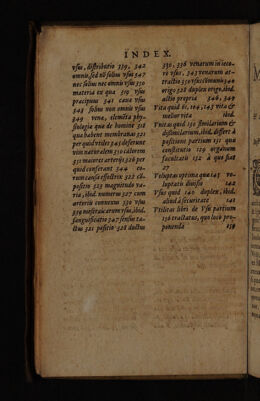 INDEX.
vsu, distributio 339, 342
omnis, sed nõ solius vsus 347
nec solius nec omnis vsus 350
materia ex qua 319 vsus
præcipuus 341 caua vsus
348 solius non omnis vsus
349 vena, elemẽta phy-
siologiæ quæ de homine 318
qua habens membranas 321
per quid vtiles 345 deserunt
vim naturalem 350 calorem
351 maiores arterijs 326 per
quid conferant 344 co-
rum causa effectrix 322 cõ-
positio 323 magnitudo va-
ria, ibid. numerus 327 cum
arterijs connexus 330 vsus
339 meseraicarum vsus, ibid.
sanguificatio 347 sensus ta-
ctus 321 positio 328 ductus
330, 338 venarum in ieco-
re vsus, 343 venarum at-
tractio 350 vsus cõmunis 340
origo 328 duplex origo, ibid.
actio propria 346, 349
Vita quid sit, 104, 145 vita &
melior vita ibid.
Vnitas quid 130 similarium &
dissimilarium, ibid. differt à
positione partium 131 qua
consistentia 129 organum
facultatis 132 à qua fiat
27
Voluptas optima quæ 145 vo-
luptatis diuisio 142
Vsus quid 140 duplex, ibid.
aliud à securitate 141
Vtilitas libri de Vsu partium
136 tractatus, quo loco pro-
ponenda 139